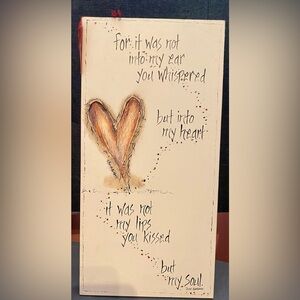 for it was not
into my ear
you whispered
but into
my heart
it was not
my lips
you kissed
but
my soul.